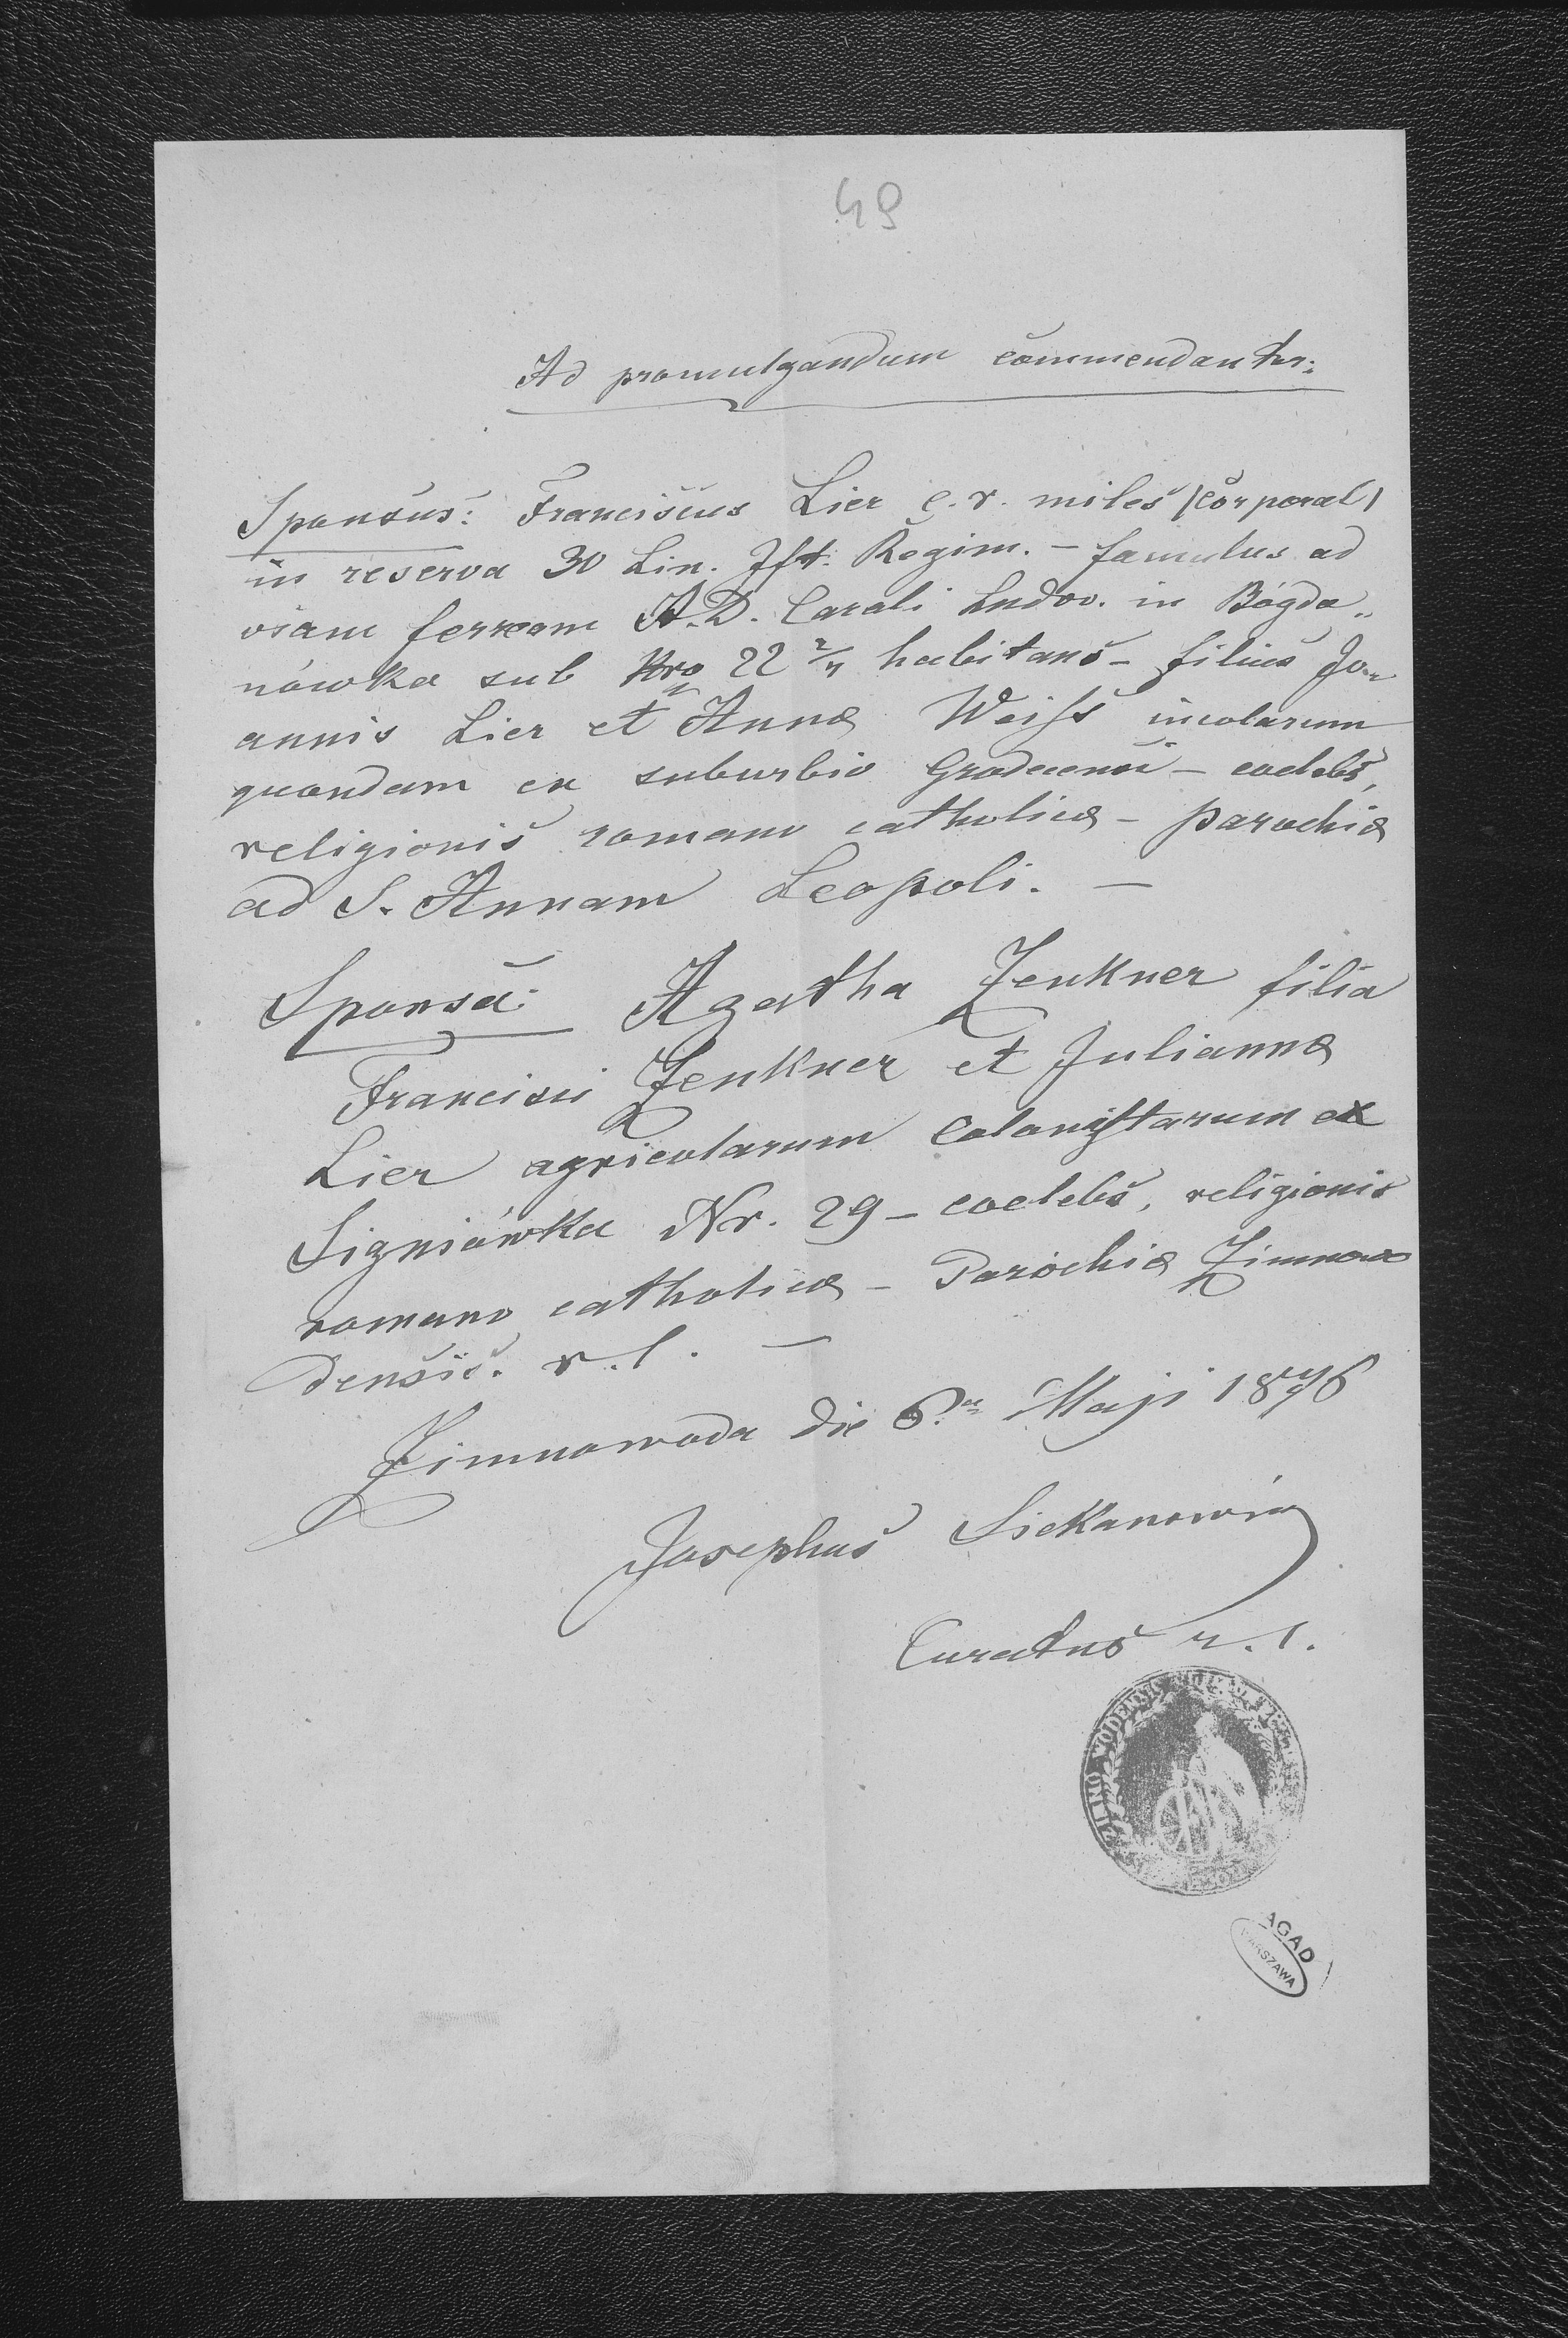 49
Ad promulgandum commendantur:
Sponsus: Franciscus Lier c. r. miles /Corporal/
in reserva 30 Lin. Ift. Regim. – famulus ad
viam ferream A. D. Caroli Ludov. in Bogda„
nówka sub Nro 22 2/4 habitans – filius Jo„
annis Lier et Annæ Weiss incolarum
quondam ex suburbio Grodecensi – coelebs,
religionis romano catholicæ – Parochiæ
ad S. Annam Leopoli. –
Sponsa: Agatha Zenkner filia
Francisci Zenkner et Juliannæ
Lier agricolarum Colonistarum ex
Signiówka Nr. 29 – coelebs, religionis
romano catholicæ – Parochiæ Zimnowo
densis. r. l. –
Zimnowoda die 6.ta Maji 1876
Josephus Siekanowicz
Curatus r. l.
ZIMNO WODENSIS
AGAD
WARSZAWA